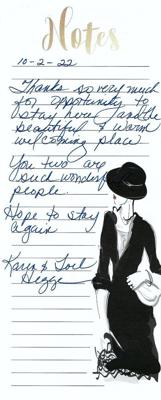 Notes
10-2-22
Thanks so very much
for opportunity to
stay here and the
beautiful & warm
welcoming place
You two are
such wonderful
people.
Hope to stay
again
Karen & Joel
Hegge